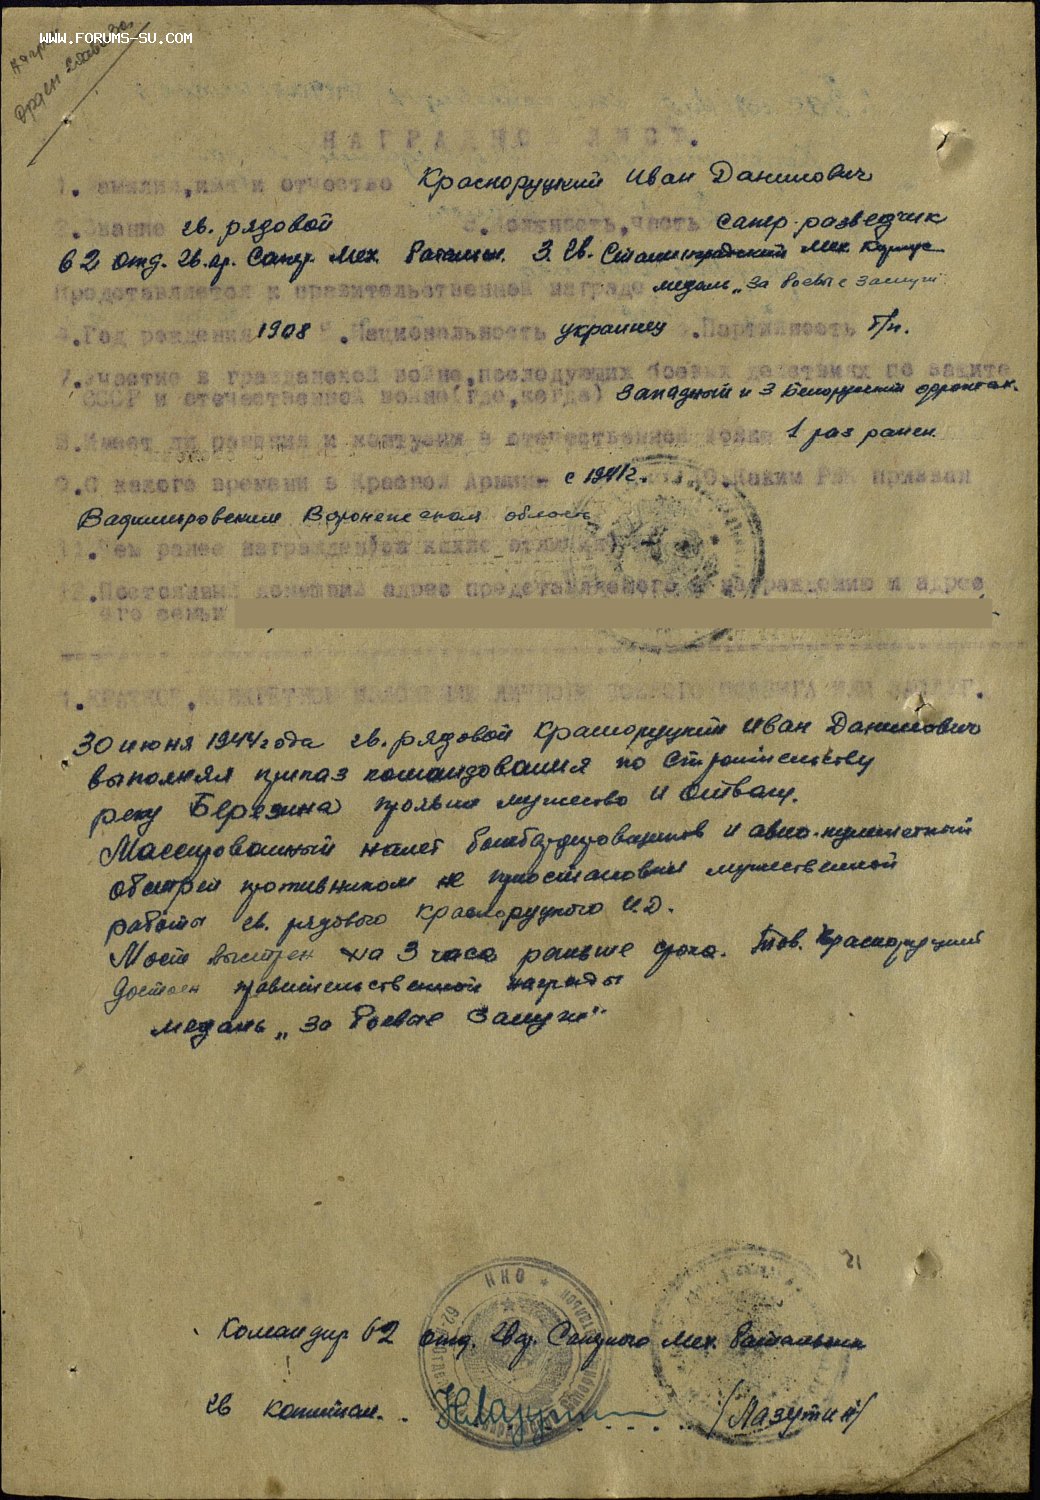 WWW.FORUMS-SU.COM
Орден Славы
НАГРАДНОЙ ЛИСТ.
1. Фамилия, имя и отчество Красноруцкий Иван Данилович
2. Звание гв. рядовой 3. Должность, часть сапер-разведчик
62 отд. гв. Сапер. Мех. Батальон. 3 Гв. Сталинградский Мех. Корпус
Представляется к правительственной награде медаль „За боевые заслуги"
4. Год рождения 1908 5. Национальность украинец 6. Партийность б/п.
7. Участие в гражданской войне, последующих боевых действиях по защите
СССР и отечественной войне (где, когда) Западный и 3 Белорусский фронтах.
8. Имеет ли ранения и контузии в отечественной войне 1 раз ранен
9. С какого времени в Красной Армии с 1941г. 10. Каким РВК призван
Воронежской область
11. Чем ранее награжден (за какие отличия)
12. Постоянный домашний адрес представляемого к награждению и адрес
его семьи
1. КРАТКОЕ, КОНКРЕТНОЕ ИЗЛОЖЕНИЕ ЛИЧНОГО БОЕВОГО ПОДВИГА ИЛИ ЗАСЛУГ.
30 июня 1944 года гв. рядовой Красноруцкий Иван Данилович
выполняя приказ командования по строительству
реку Березина проявил мужество и отвагу.
Массированный налет бомбардировщиков и авио-пулеметный
обстрел противником не приостановил мужественной
работы гв. рядового Красноруцкого И.Д.
Мост выстрен на 3 часа раньше срока. Тов. Красноруцкий
достоен правительственной награды
медаль „За боевые заслуги"
15
НКО
Командир 62 отд. гвар. Саперного Мех. батальона
гв капитан. Н Лазутин /Лазутин/